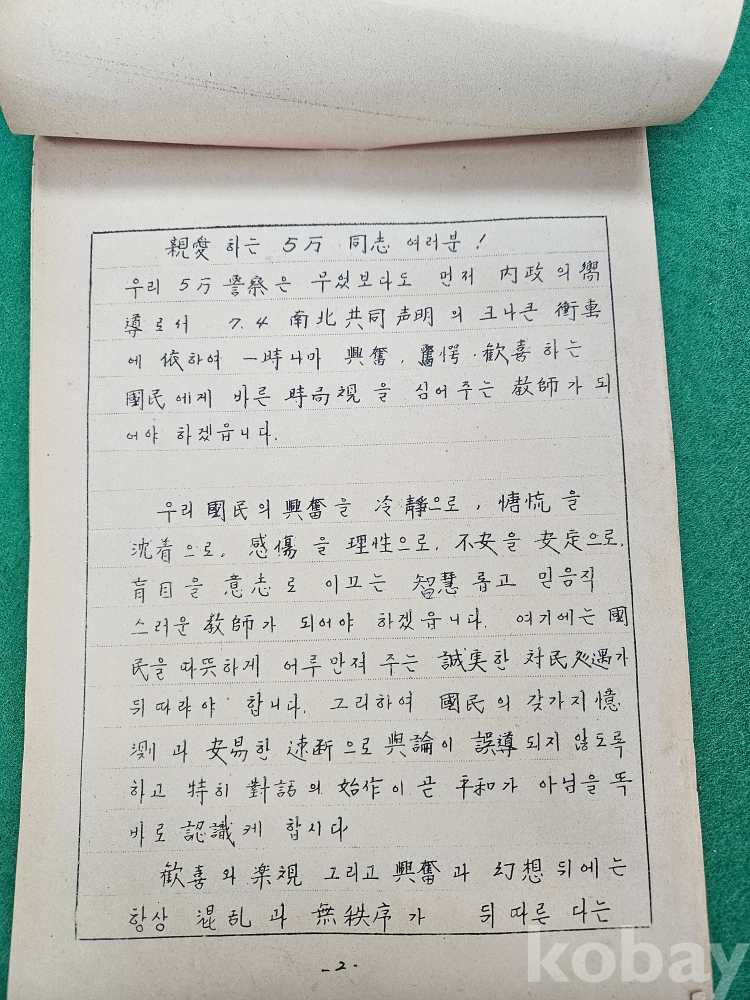 親愛 하는 5万 同志 여러분!
우리 5万 警察은 무엇보다도 먼저 內政의嚮
導로서 7.4 南北共同声明 의 크나큰 衝擊
에 依하여 一時나마 興奮. 驚愕·歡喜하는
國民에게 바른 時局視을 심어주는 敎師가 되
어야 하겠읍니다.
우리 國民의 興奮을 冷靜으로, 慌을
沈着으로, 感傷을 理性으로, 不安을 安定으로,
盲目을 意志로 이끄는 智慧롭고 믿음직
스러운 敎師가 되어야 하겠읍니다. 여기에는國
民을 따뜻하게 어루만져 주는 誠実한 対民処遇가
뒤따라야 합니다. 그리하여 國民의 갖가지憶
測과 安易한 速断으로 輿論이 誤導되지 않도록
하고 特히 對話의 始作이 곧 平和가 아님을 똑
바로 認識케 합시다
歡喜와 楽観 그리고 興奮과 幻想 뒤에는
항상 混乱과 無秩序가 뒤 따른 다는
-2-
kobay